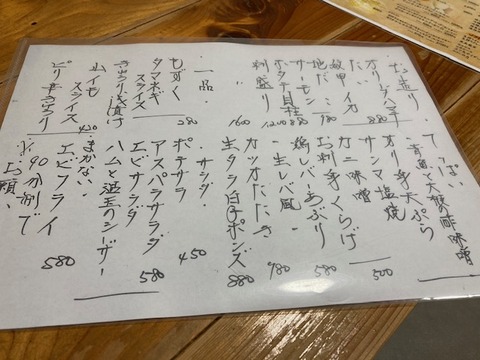 お造り
オリーブハマチ
だい
イカ
紋甲
地だこ 780
サーモン 880
ホタテ貝柱 880
刺盛り 1200
〃 1600
一品
もずく 280
タマネギスライス
きゅうり浅漬け
山イモスライス 420
ピリ辛きゅうり
てっぱい
青魚と大根の酢味噌
オリーブ
天ぷら
サンマ塩焼
カニ味噌 500
お刺身くらげ
鶏レバーあぶり 580
生レバ風 780
カツオたたき
生タラ白子ポンズ 880
サラダ
ポテサラ 450
アスパラサラダ
エビサラダ 580
ハムと温玉のシーザー
まかない
エビフライ 580
※90分制で
お願い